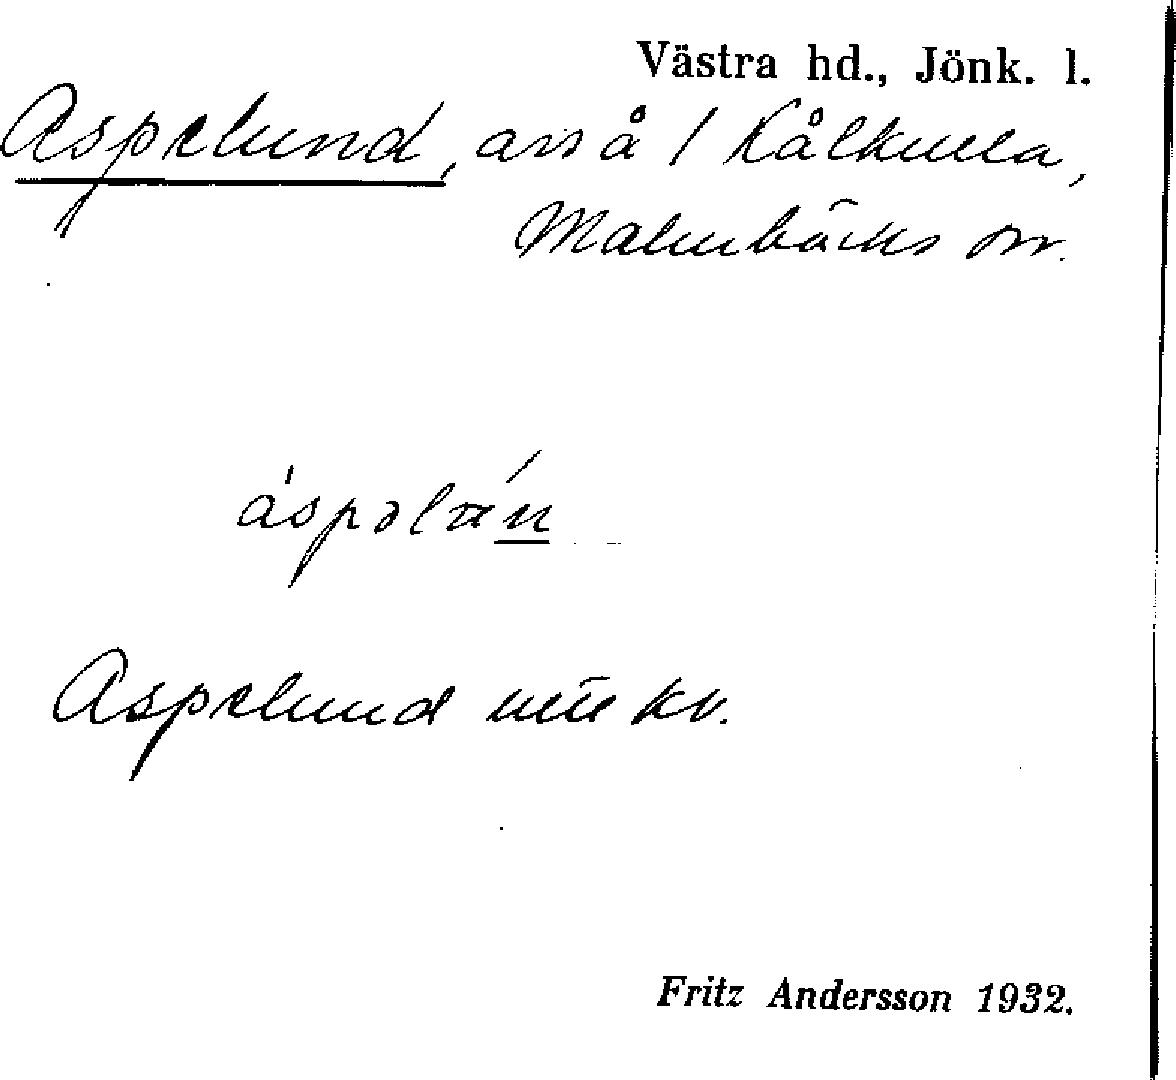 Västra hd., Jönk. l.
Aspelund, avs å 1 Kålkulla,
Malmbäcks sn.
Aspelund kv.
Fritz Andersson 1932.